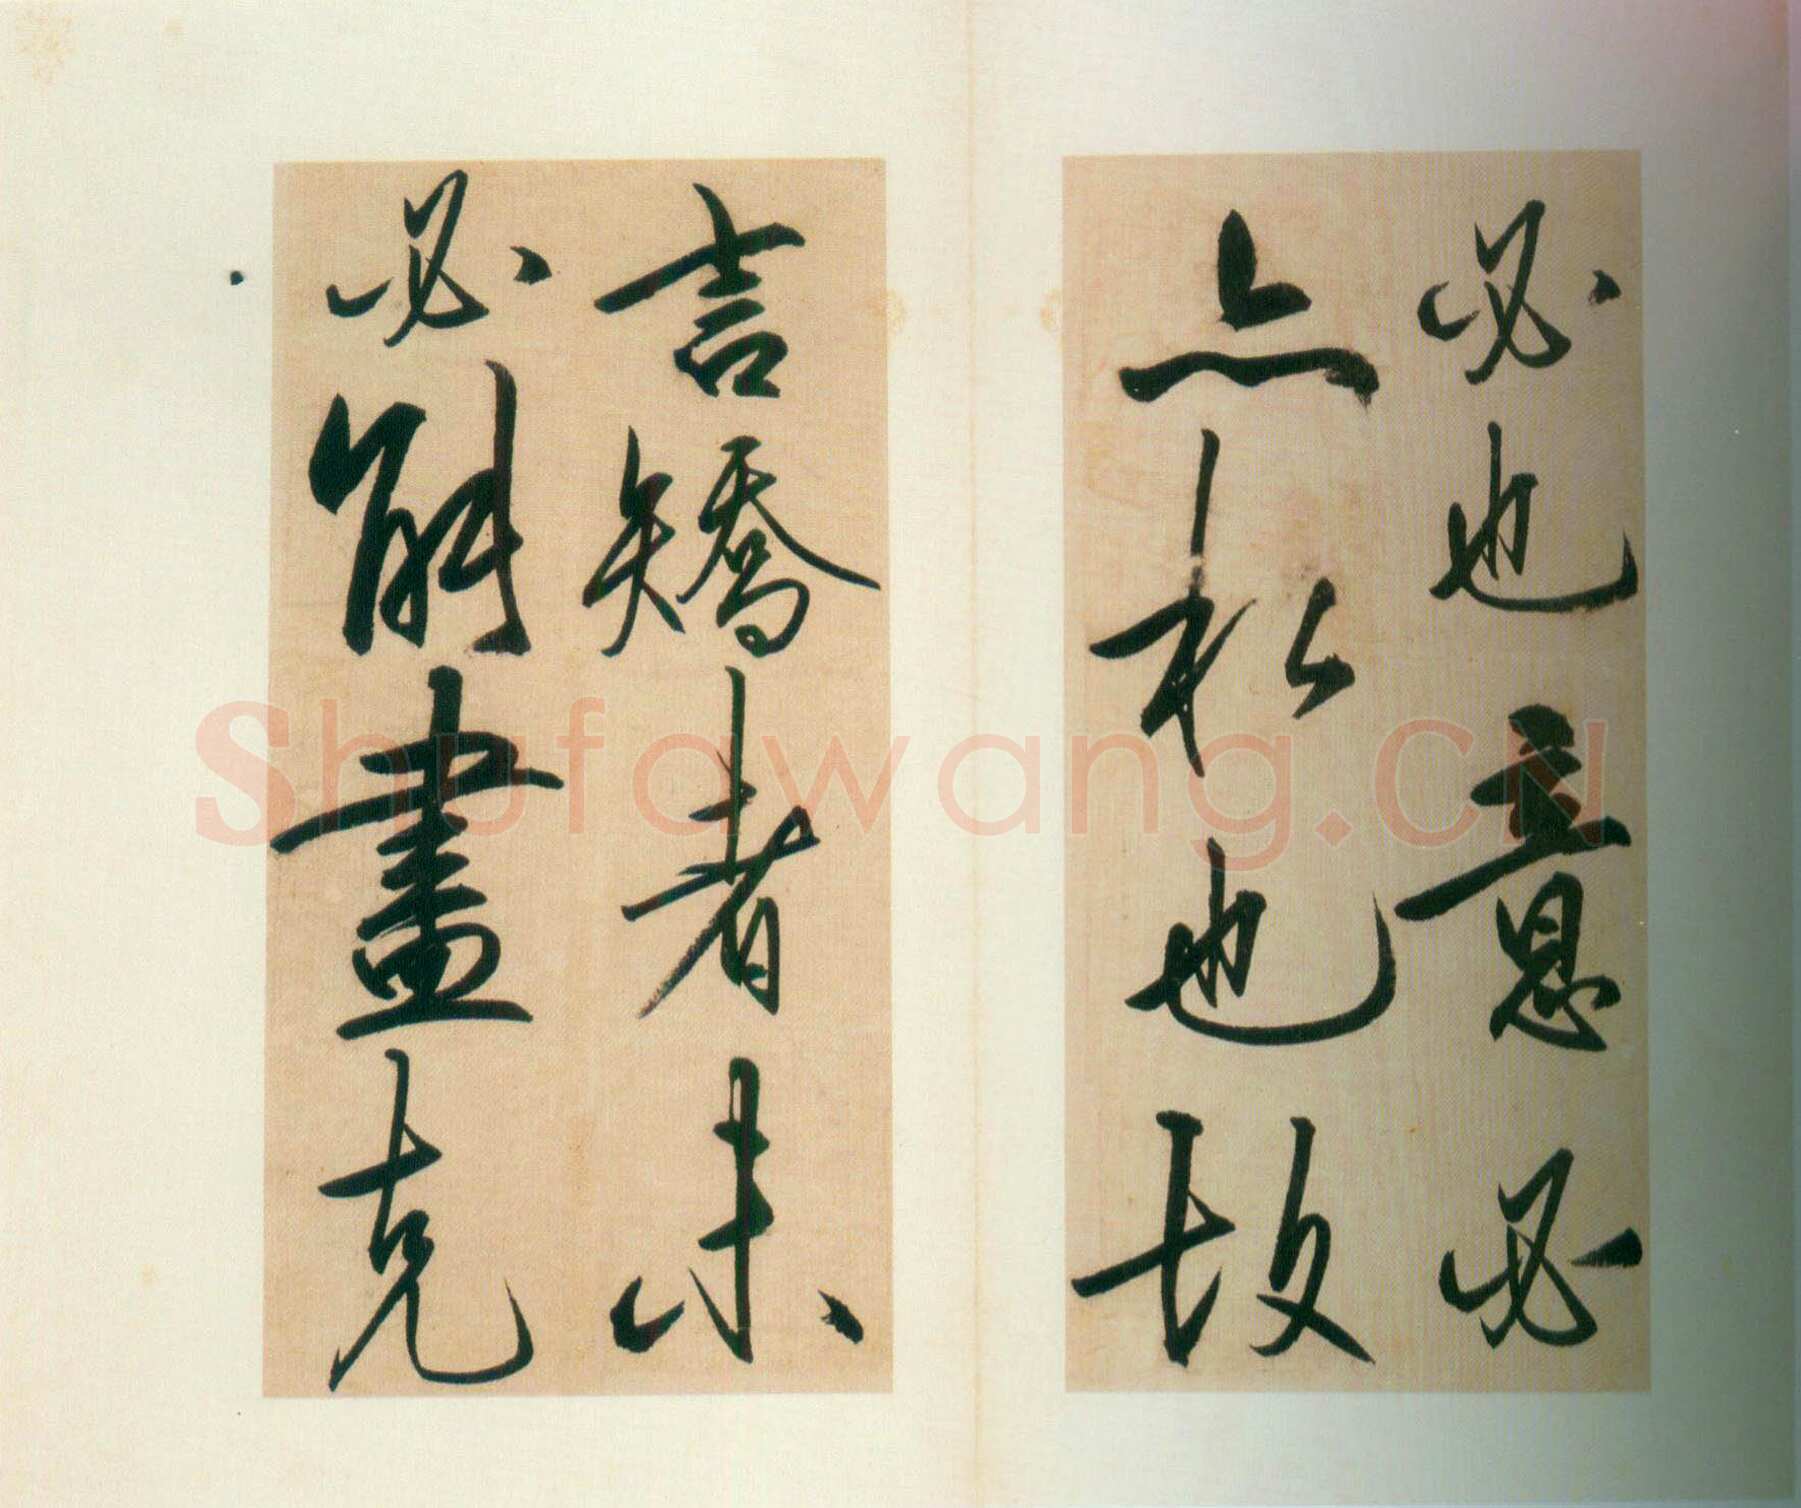 必也意必
亦私也故
言矯者未
必能盡克
Shufawang.CN